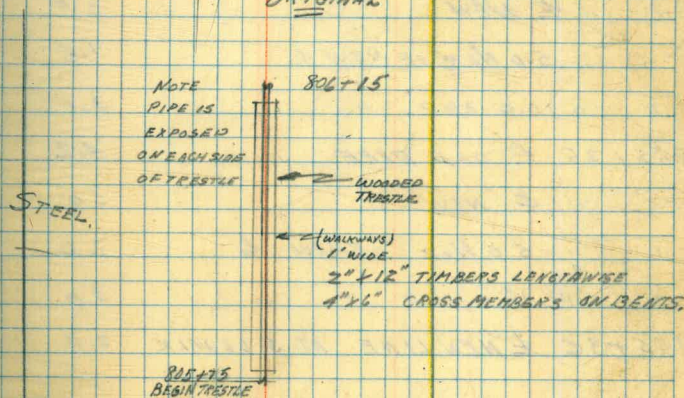 ORIGINAL
806+15
NOTE
PIPE IS
EXPOSED
ON EACH SIDE
OF TRESTLE
WOODED
TRESTLE
STEEL.
(WALKWAYS)
1' WIDE
2" X 12" TIMBERS LENGTHWISE
4" X 6" CROSS MEMBERS ON BENTS.
805+75
BEGIN TRESTLE